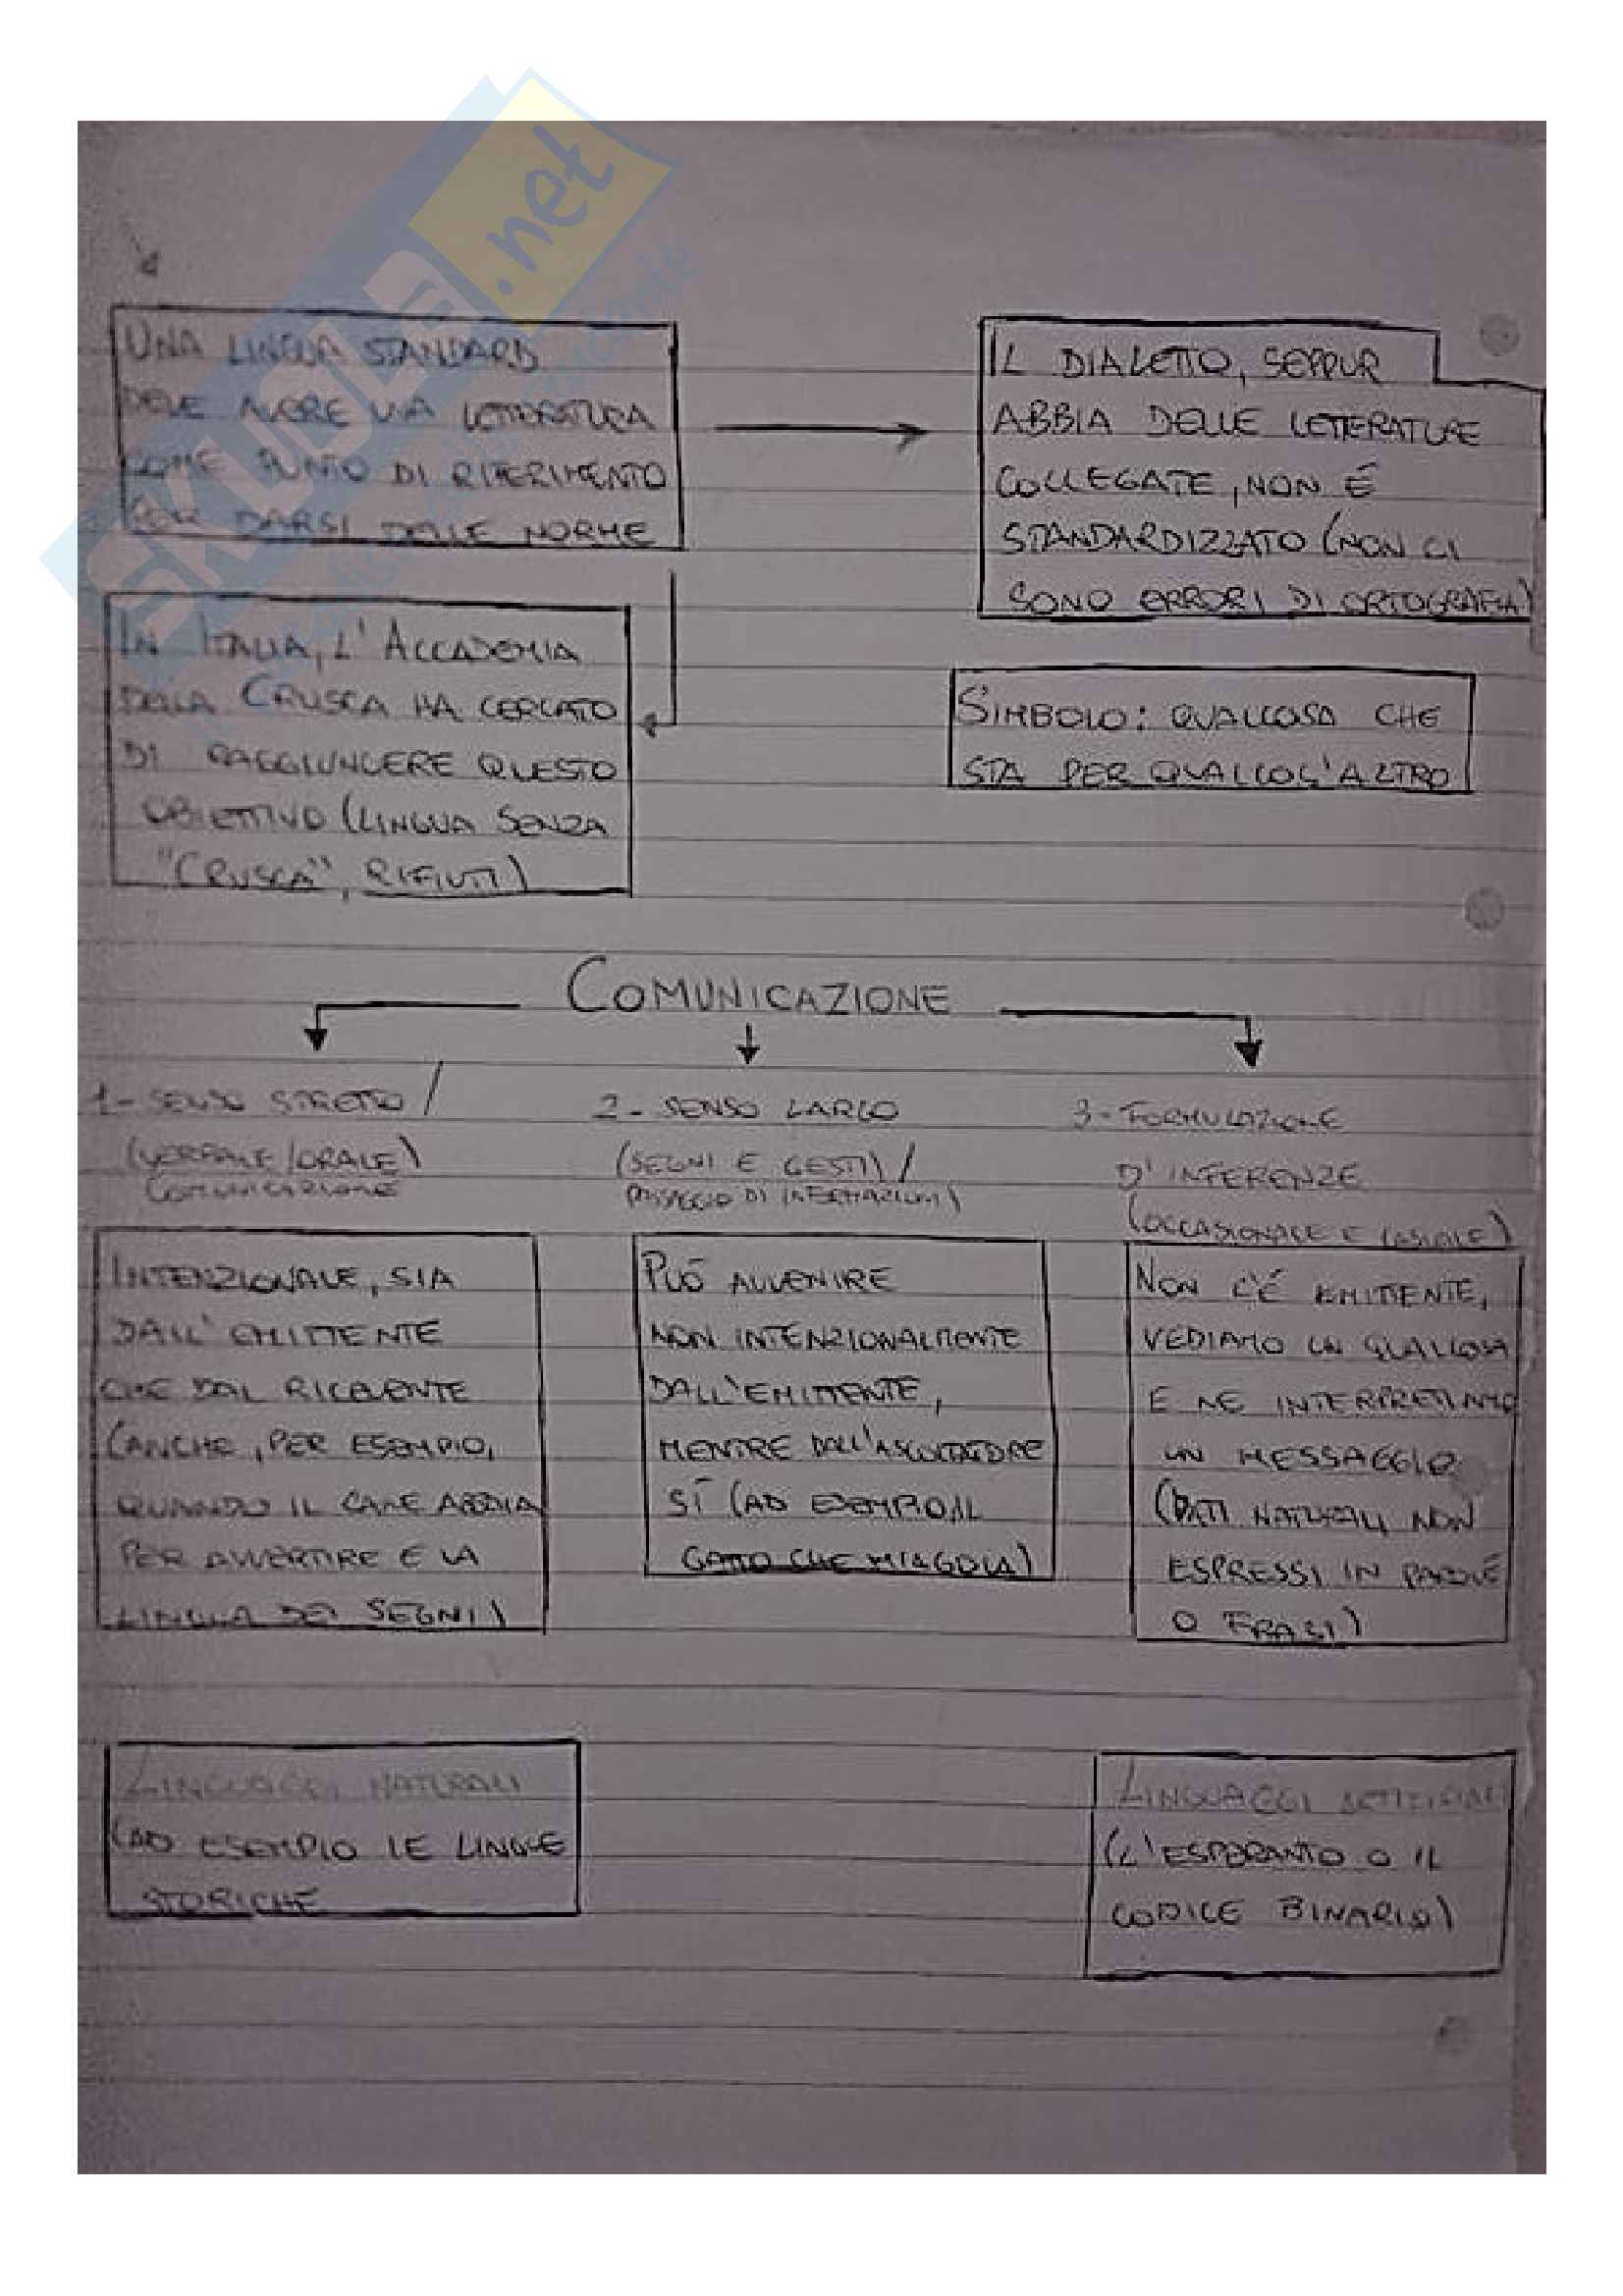 SKUOLA.net
UNA LINGUA STANDARD
DEVE AVERE UNA LETTERATURA
COME PUNTO DI RIFERIMENTO
PER DARSI DELLE NORME
IL DIALETTO, SEPPUR
ABBIA DELLE LETTERATURE
COLLEGATE, NON É
STANDARDIZZATO (NON CI
SONO ERRORI DI ORTOGRAFIA)
IN ITALIA, L'ACCADEMIA
DELLA CRUSCA HA CERCATO
DI RAGGIUNGERE QUESTO
OBIETTIVO (LINGUA SENZA
"CRUSCA", RIFIUTI)
SIMBOLO: QUALCOSA CHE
STA PER QUALCOS'ALTRO
COMUNICAZIONE
1- SENSO STRETTO /
(VERBALE/ORALE)
COMUNICAZIONE
2- SENSO LARGO
(SEGNI E GESTI) /
PASSAGGIO DI INFORMAZIONI)
3- FORMULAZIONE
D'INFERENZE
(OCCASIONALE E CASUALE)
INTENZIONALE, SIA
DALL'EMITTENTE
CHE DAL RICEVENTE
(ANCHE, PER ESEMPIO,
QUANDO IL CANE ABBAIA
PER AVVERTIRE E LA
LINGUA DEI SEGNI)
PUÓ AVVENIRE
NON INTENZIONALMENTE
DALL'EMITTENTE,
MENTRE DALL'ASCOLTATORE
SÍ (AD ESEMPIO, IL
GATTO CHE MIAGOLA)
NON C'É EMITTENTE,
VEDIAMO UN QUALCOSA
E NE INTERPRETIAMO
UN MESSAGGIO
(DATI NATURALI, NON
ESPRESSI IN PAROLE
O FRASI)
LINGUAGGI NATURALI
(AD ESEMPIO LE LINGUE
STORICHE
LINGUAGGI ARTIFICIALI
(L'ESPERANTO O IL
CODICE BINARIO)